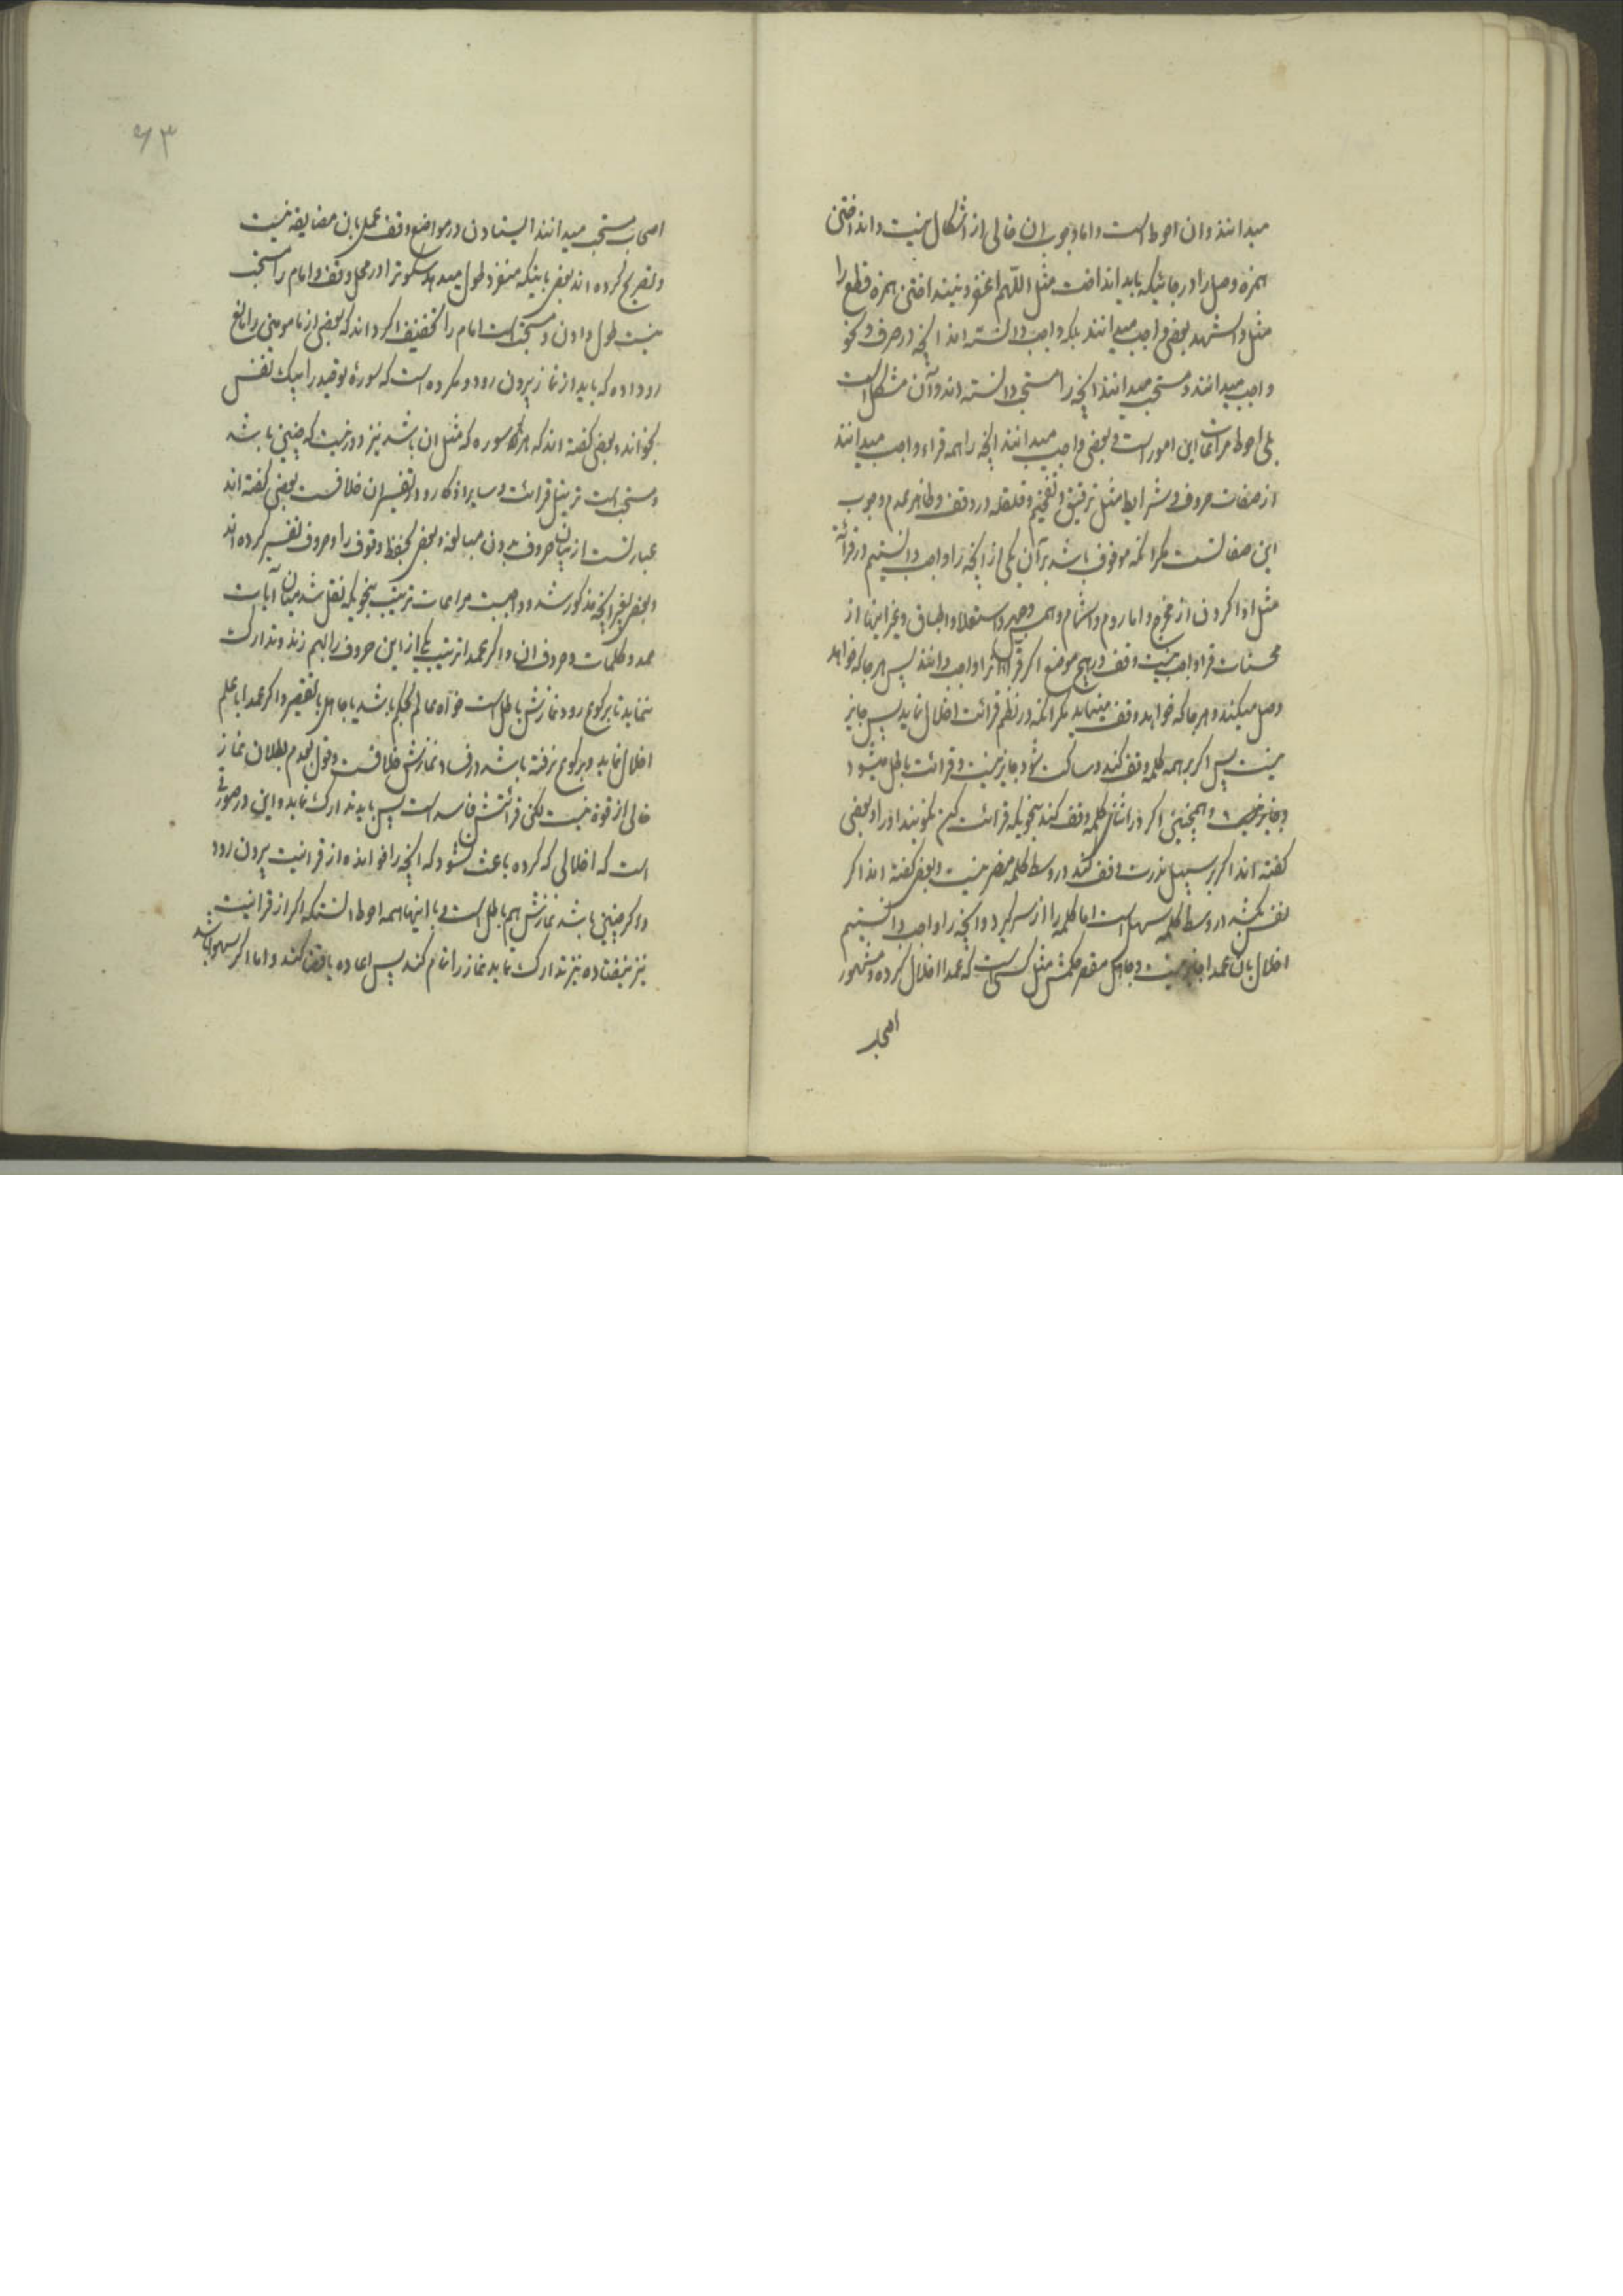 میدانند و ان احوط است و اما وجوب ان خالی از اشکال نیست و انداختن
همزه وصل را در جائیکه باید انداخت مثل اللهم اغفر و نینداختن همزه قطع را
مثل و اشهد بعضی واجب میدانند بلکه واجب دانسته اند انچه در صرف و نحو
واجب میدانند و مستحب میدانند انچه را مستحب دانسته اند و آن مشکل است
بلی احوط مراعات این امور است و بعضی واجب میدانند انچه را همه قراء واجب میدانند
از صفات حروف و شرایط مثل ترقیق و تفخیم و قلقله در وقف و ظاهر عدم وجوب
این صفاتست مکر انکه موقوف باشد بر آن یکی از انچه را واجب دانستیم در قرائة
مثل ادا کردن از مخرج و اما روم و اشمام و همس و جهر و استعلا و اطباق و غیر اینها از
محسنات قرا واجب نیست وقف در هیچ موضع اکر قرا انرا واجب دانند پس هر جا که خواهد
وصل میکند و هر جا که خواهد وقف مینماید مکر انکه در نظم قرائت اخلال نماید پس جایز
نیست پس اکر بر همه کلمه وقف کند و ساکت شود جایز نیست و قرائت باطل میشود
و جایز نیست و همچنین اکر در اثنای کلمه وقف کند بنحویکه قرائت کن نکویند او را و بعضی
کفته اند اکر بر سبیل ندرت وقف کند در وسط کلمه مضر نیست و بعضی کفته اند اکر
نفس بکشد در وسط کلمه سهل است اما کلمه را از سر کیرد و انچه را واجب دانستیم
اخلال بان عمدا جایز نیست و جاهل مقصر حکمش مثل کسی است که عمدا اخلال کرده و مشهور
اصحاب
۶۳
اصحاب مستحب میدانند ایستادن در مواضع وقف عمل بان مضایقه نیست
و تصریح کرده اند بعضی باینکه منفرد طول میدهد سکوترا در محل وقف و امام را مستحب
نیست طول دادن و مستحب است امام را تخفیف اکر داند که بعضی از مامومین را مانع
رو داده که باید از نماز بیرون رود و مکروه است که سوره توحید را بیک نفس
بخواند و بعضی کفته اند که هر سوره که مثل ان باشد نیز دور نیست که چنین باشد
و مستحب است ترتیل قرائت و سایر اذکار و در تفسیر ان خلافست بعضی کفته اند
عبارتست از بیان حروف بدون مبالغه و بعضی بحفظ وقوف را و حروف تفسیر کرده اند
و بعضی بغیر انچه مذکور شد و واجبست مراعات ترتیب بنحویکه نقل شد میان آیات
حمد و کلمات و حروف ان و اکر عمدا ترتیب یکی از این حروف را بهم زند و تدارک
ننماید تا برکوع رود نمازش باطل است خواه عالم بحکم باشد یا جاهل بالتقصیر و اکر عمدا با علم
اخلال نماید و برکوع نرفته باشد در فساد نمازش خلافست و قول بعدم بطلان نماز
خالی از قوة نیست لکن قرائتش فاسد است پس باید تدارک نماید و این در صورتی
است که اخلالی که کرده باعث نشود که انچه را خوانده از قرانیت بیرون رود
و اکر چنین باشد نمازش هم باطل است و با اینها همه احوط انستکه اکر از قرانیت
نیز نیفتاده نیز تدارک نماید نماز را تمام کند پس اعاده یا قضا کند و اما اکر سهوا باشد